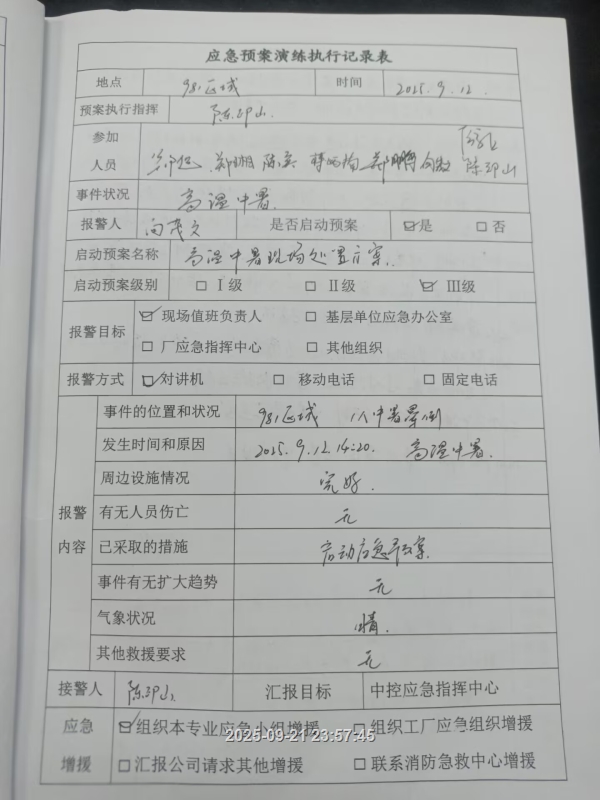 应急预案演练执行记录表
地点 981区域 时间 2025.9.12.
预案执行指挥 陈卫山.
参加
人员 郑湘 陈兵 郑鹏 陈卫山
事件状况 高温中暑.
报警人 向茂文 是否启动预案 ☑是 □否
启动预案名称 高温中暑现场处置方案.
启动预案级别 □Ⅰ级 □Ⅱ级 ☑Ⅲ级
报警目标 ☑现场值班负责人 □基层单位应急办公室
□厂应急指挥中心 □其他组织
报警方式 ☑对讲机 □移动电话 □固定电话
报警
内容
事件的位置和状况 981区域 1人中暑晕倒
发生时间和原因 2025.9.12 14:20. 高温中暑.
周边设施情况 完好.
有无人员伤亡 无
已采取的措施 启动应急预案.
事件有无扩大趋势 无
气象状况 晴.
其他救援要求 无
接警人 陈卫山 汇报目标 中控应急指挥中心
应急
增援
☑组织本专业应急小组增援 □组织工厂应急组织增援
□汇报公司请求其他增援 □联系消防急救中心增援
2025-09-21 23:57:45